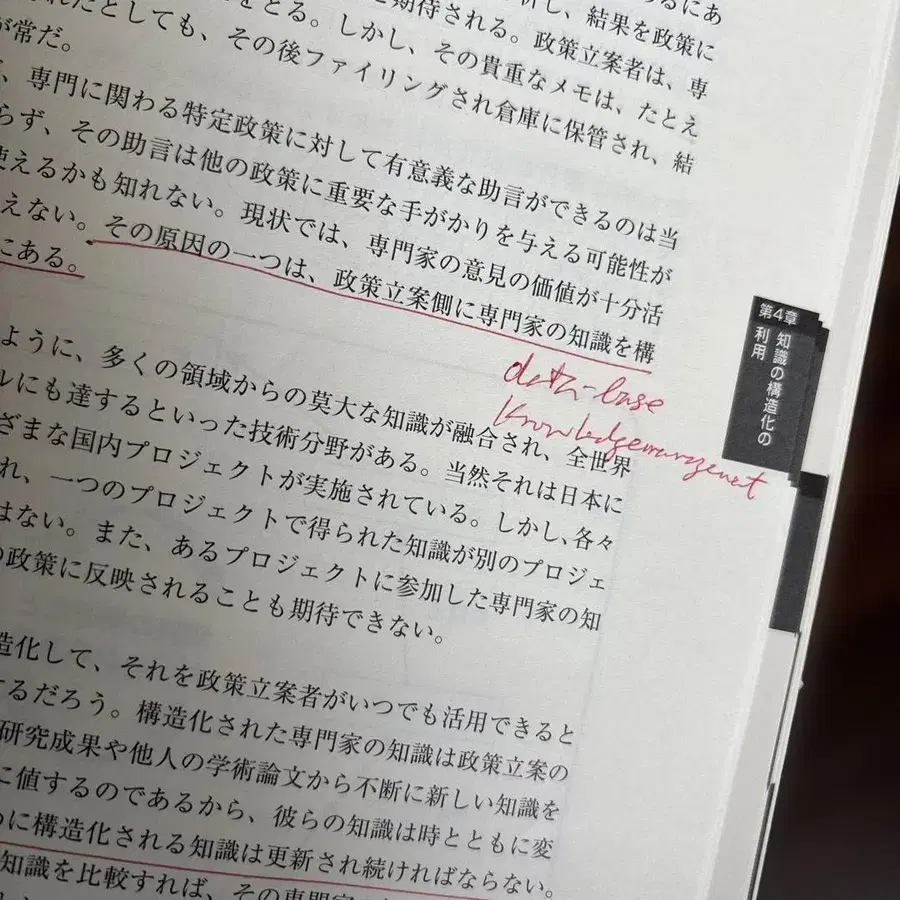 期待される。政策立案者は、専
をとる。しかし、その貴重なメモは、たとえ
れたとしても、その後ファイリングされ倉庫に保管され、結
が常だ。
、専門に関わる特定政策に対して有意義な助言ができるのは当
らず、その助言は他の政策に重要な手がかりを与える可能性が
使えるかも知れない。現状では、専門家の意見の価値が十分活
えない。その原因の一つは、政策立案側に専門家の知識を構
にある。
data-base
Knowledgemanagement
ように、多くの領域からの莫大な知識が融合され、全世界
ルにも達するといった技術分野がある。当然それは日本に
ざまな国内プロジェクトが実施されている。しかし、各々
れ、一つのプロジェクトで得られた知識が別のプロジェ
はない。また、あるプロジェクトに参加した専門家の知
の政策に反映されることも期待できない。
造化して、それを政策立案者がいつでも活用できると
するだろう。構造化された専門家の知識は政策立案の
研究成果や他人の学術論文から不断に新しい知識を
に値するのであるから、彼らの知識は時とともに変
めに構造化される知識は更新され続ければならない。
知識を比較すれば、その専門家
第4章
知識の構造化の
利用